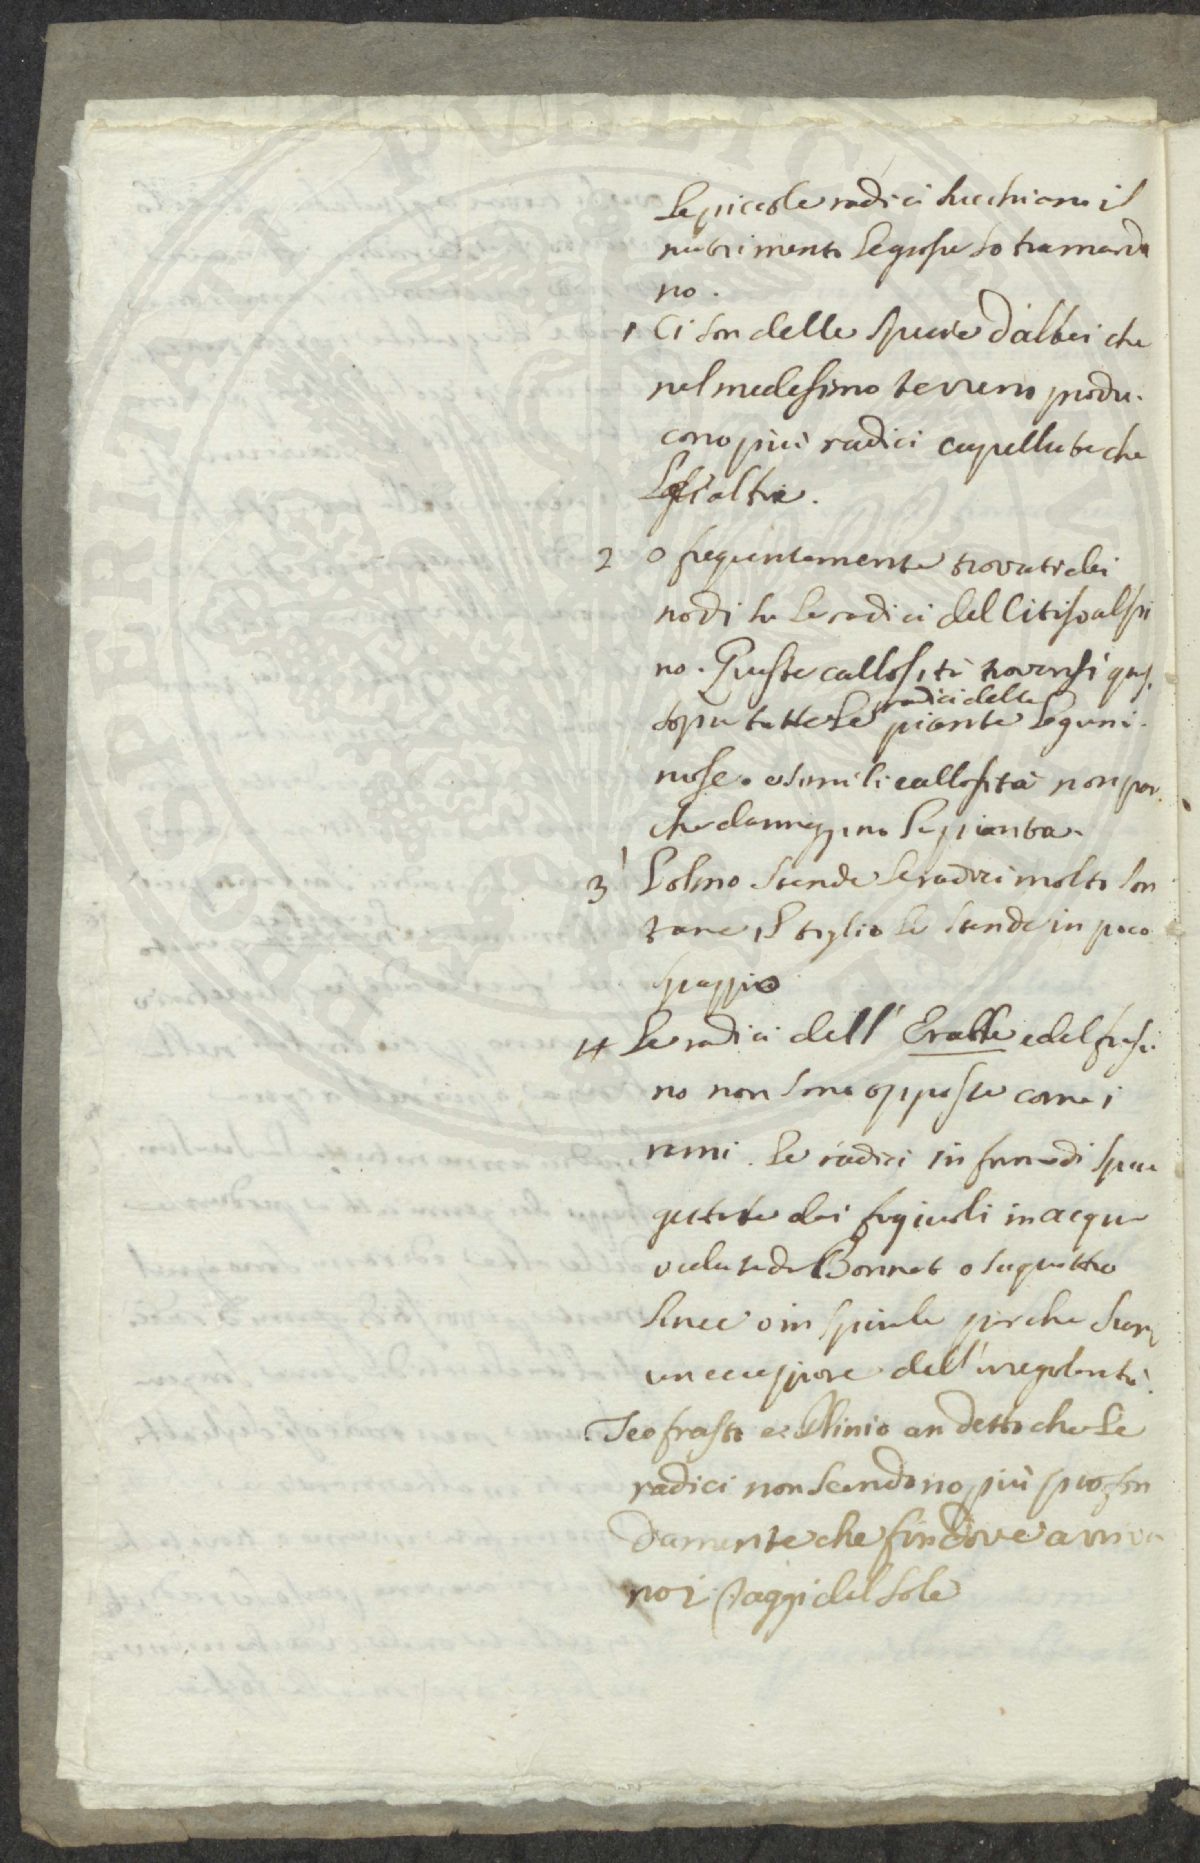 Le piccole radici succhiano il
nutrimento le grosse lo tramanda
no.
1 Ci son delle specie d'albei che
nel medesimo terreno produ-
cono più radici capellute che
gl'altri.
2 o frequentemente trovati dei
nodi su le radici del Citiso alpi
no. Queste callosità trovansi qua
sopra tutte le radici delle piante legumi-
nose. e simili callosità non par
che dannegino le pianta.
3 L'olmo stende le radici molto lon
tane, il tiglio le stende in poco
spazio
4 Le radici dell' Erable e del frassi
no non sono opposte come i
rami. Le radici in fondi
gettate dai fagiuoli in acqua
vedute da Bonnet o su quattro
linee o in spirale par che sian
un eccezione dell'irregolarità.
Teofrasto e Plinio an detto che le
radici non scendono più profon
damente che fin dove arriva
no i raggi del sole